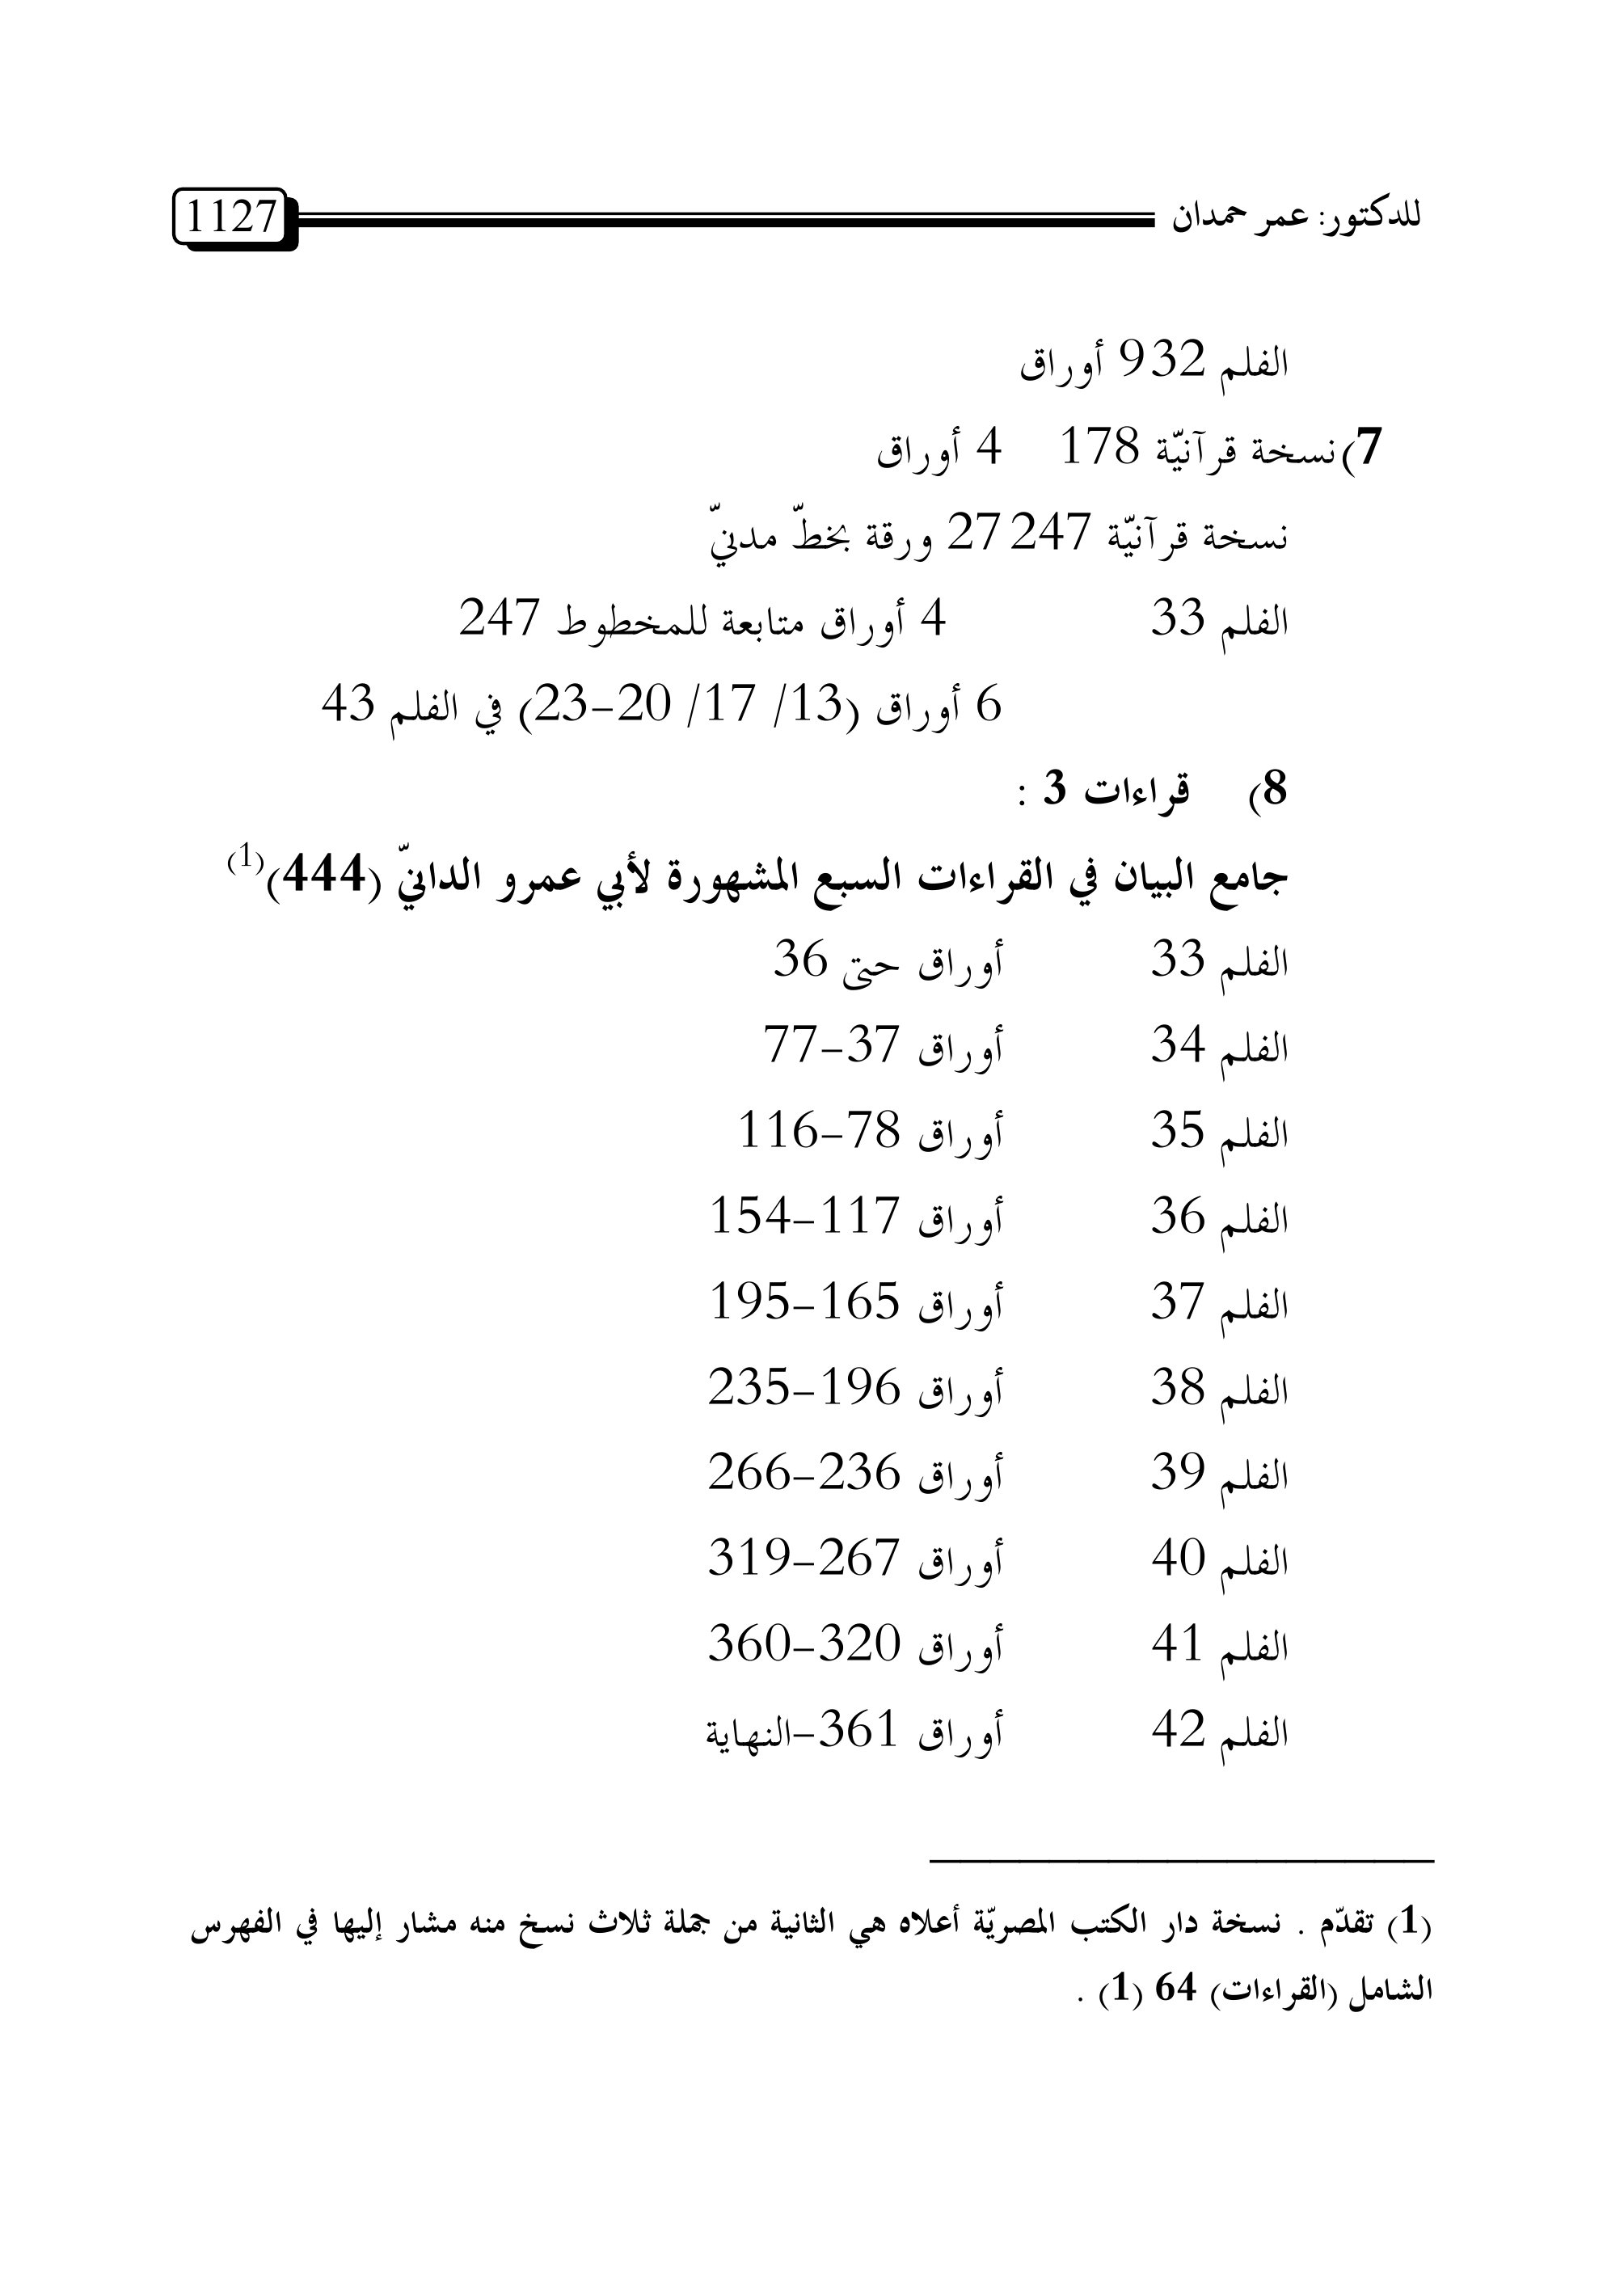 للدكتور: عمر حمدان 1127
الفلم 32 9 أوراق
7) نسخة قرآنيّة 178 4 أوراق
نسخة قرآنيّة 247 27 ورقة بخطّ مدنيّ
الفلم 33 4 أوراق متابعة للمخطوط 247
6 أوراق (13/ 17/ 20–23) في الفلم 43
8) قراءات 3 :
جامع البيان في القراءات السبع المشهورة لأبي عمرو الدانيّ (444)(1)
الفلم 33 أوراق حتى 36
الفلم 34 أوراق 37–77
الفلم 35 أوراق 78–116
الفلم 36 أوراق 117–154
الفلم 37 أوراق 165–195
الفلم 38 أوراق 196–235
الفلم 39 أوراق 236–266
الفلم 40 أوراق 267–319
الفلم 41 أوراق 320–360
الفلم 42 أوراق 361–النهاية
(1) تقدّم . نسخة دار الكتب المصريّة أعلاه هي الثانية من جملة ثلاث نسخ منه مشار إليها في الفهرس
الشامل (القراءات) 64 (1) .